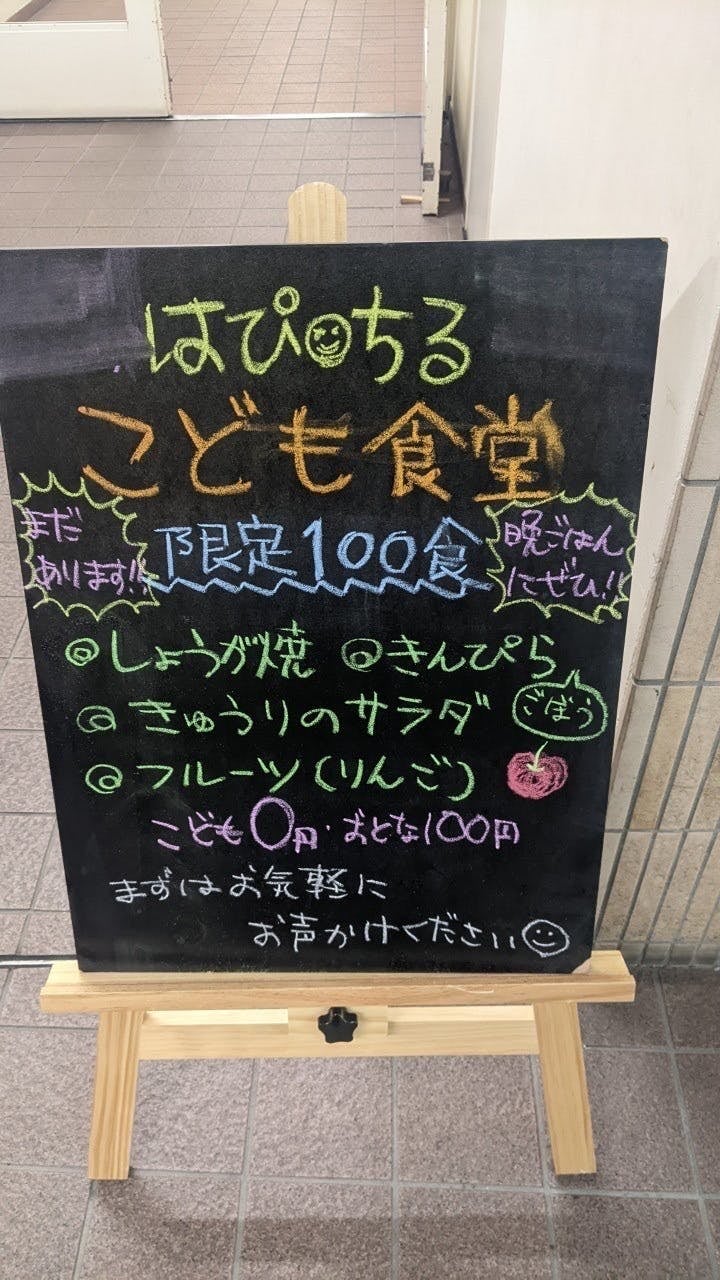 はぴちる
こども食堂
まだ
あります!!
限定100食
晩ごはん
にぜひ!!
◎しょうが焼 ◎きんぴら
ごぼう
◎きゅうりのサラダ
◎フルーツ(りんご)
こども0円・おとな100円
まずはお気軽に
お声かけください